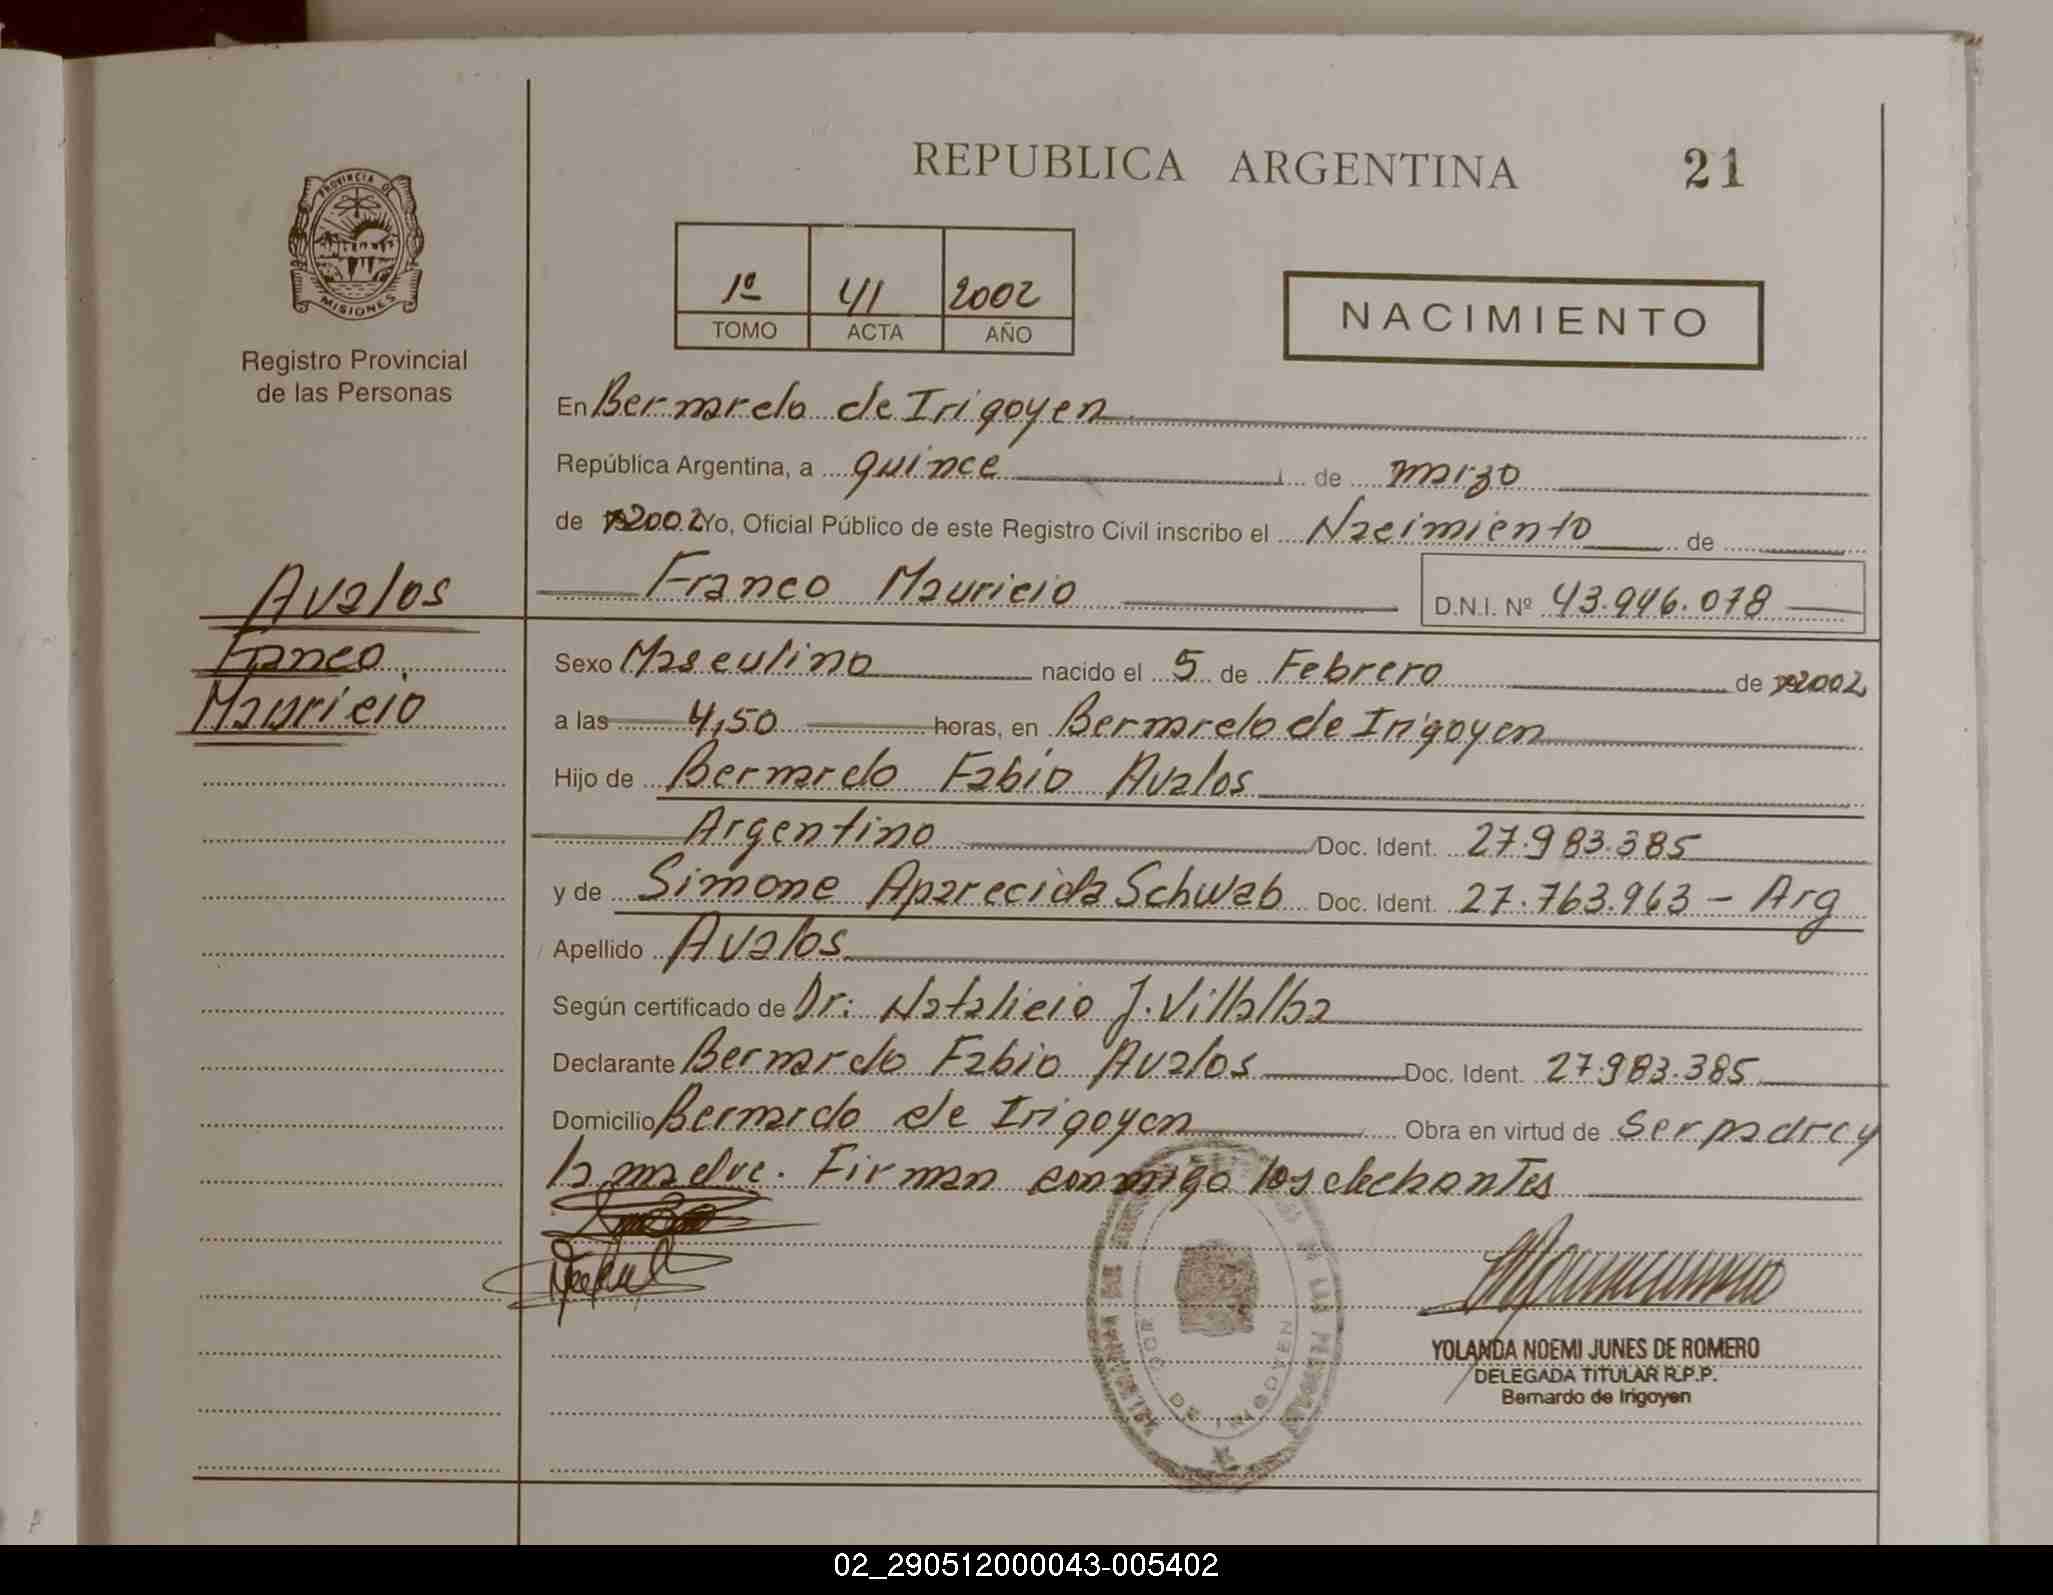 REPUBLICA ARGENTINA 21
PROVINCIA DE
MISIONES
Registro Provincial
de las Personas
1º 41 2002
TOMO ACTA AÑO
NACIMIENTO
En Bernardo de Irigoyen
República Argentina, a quince de marzo
de 2002 Yo, Oficial Público de este Registro Civil inscribo el Nacimiento de
Franco Mauricio D.N.I. Nº 43.946.078
Avalos
Franco
Mauricio
Sexo Masculino nacido el 5 de Febrero de 2002
a las 4,50 horas, en Bernardo de Irigoyen
Hijo de Bernardo Fabio Avalos
Argentino Doc. Ident. 27.983.385
y de Simone Aparecida Schwab Doc. Ident. 27.763.963 - Arg
Apellido Avalos
Según certificado de Dr: Natalicio J. Villalba
Declarante Bernardo Fabio Avalos Doc. Ident. 27.983.385
Domicilio Bernardo de Irigoyen Obra en virtud de ser padre y
la madre. Firman conmigo los
DE IRIGOYEN
YOLANDA NOEMI JUNES DE ROMERO
DELEGADA TITULAR R.P.P.
Bernardo de Irigoyen
02_290512000043-005402